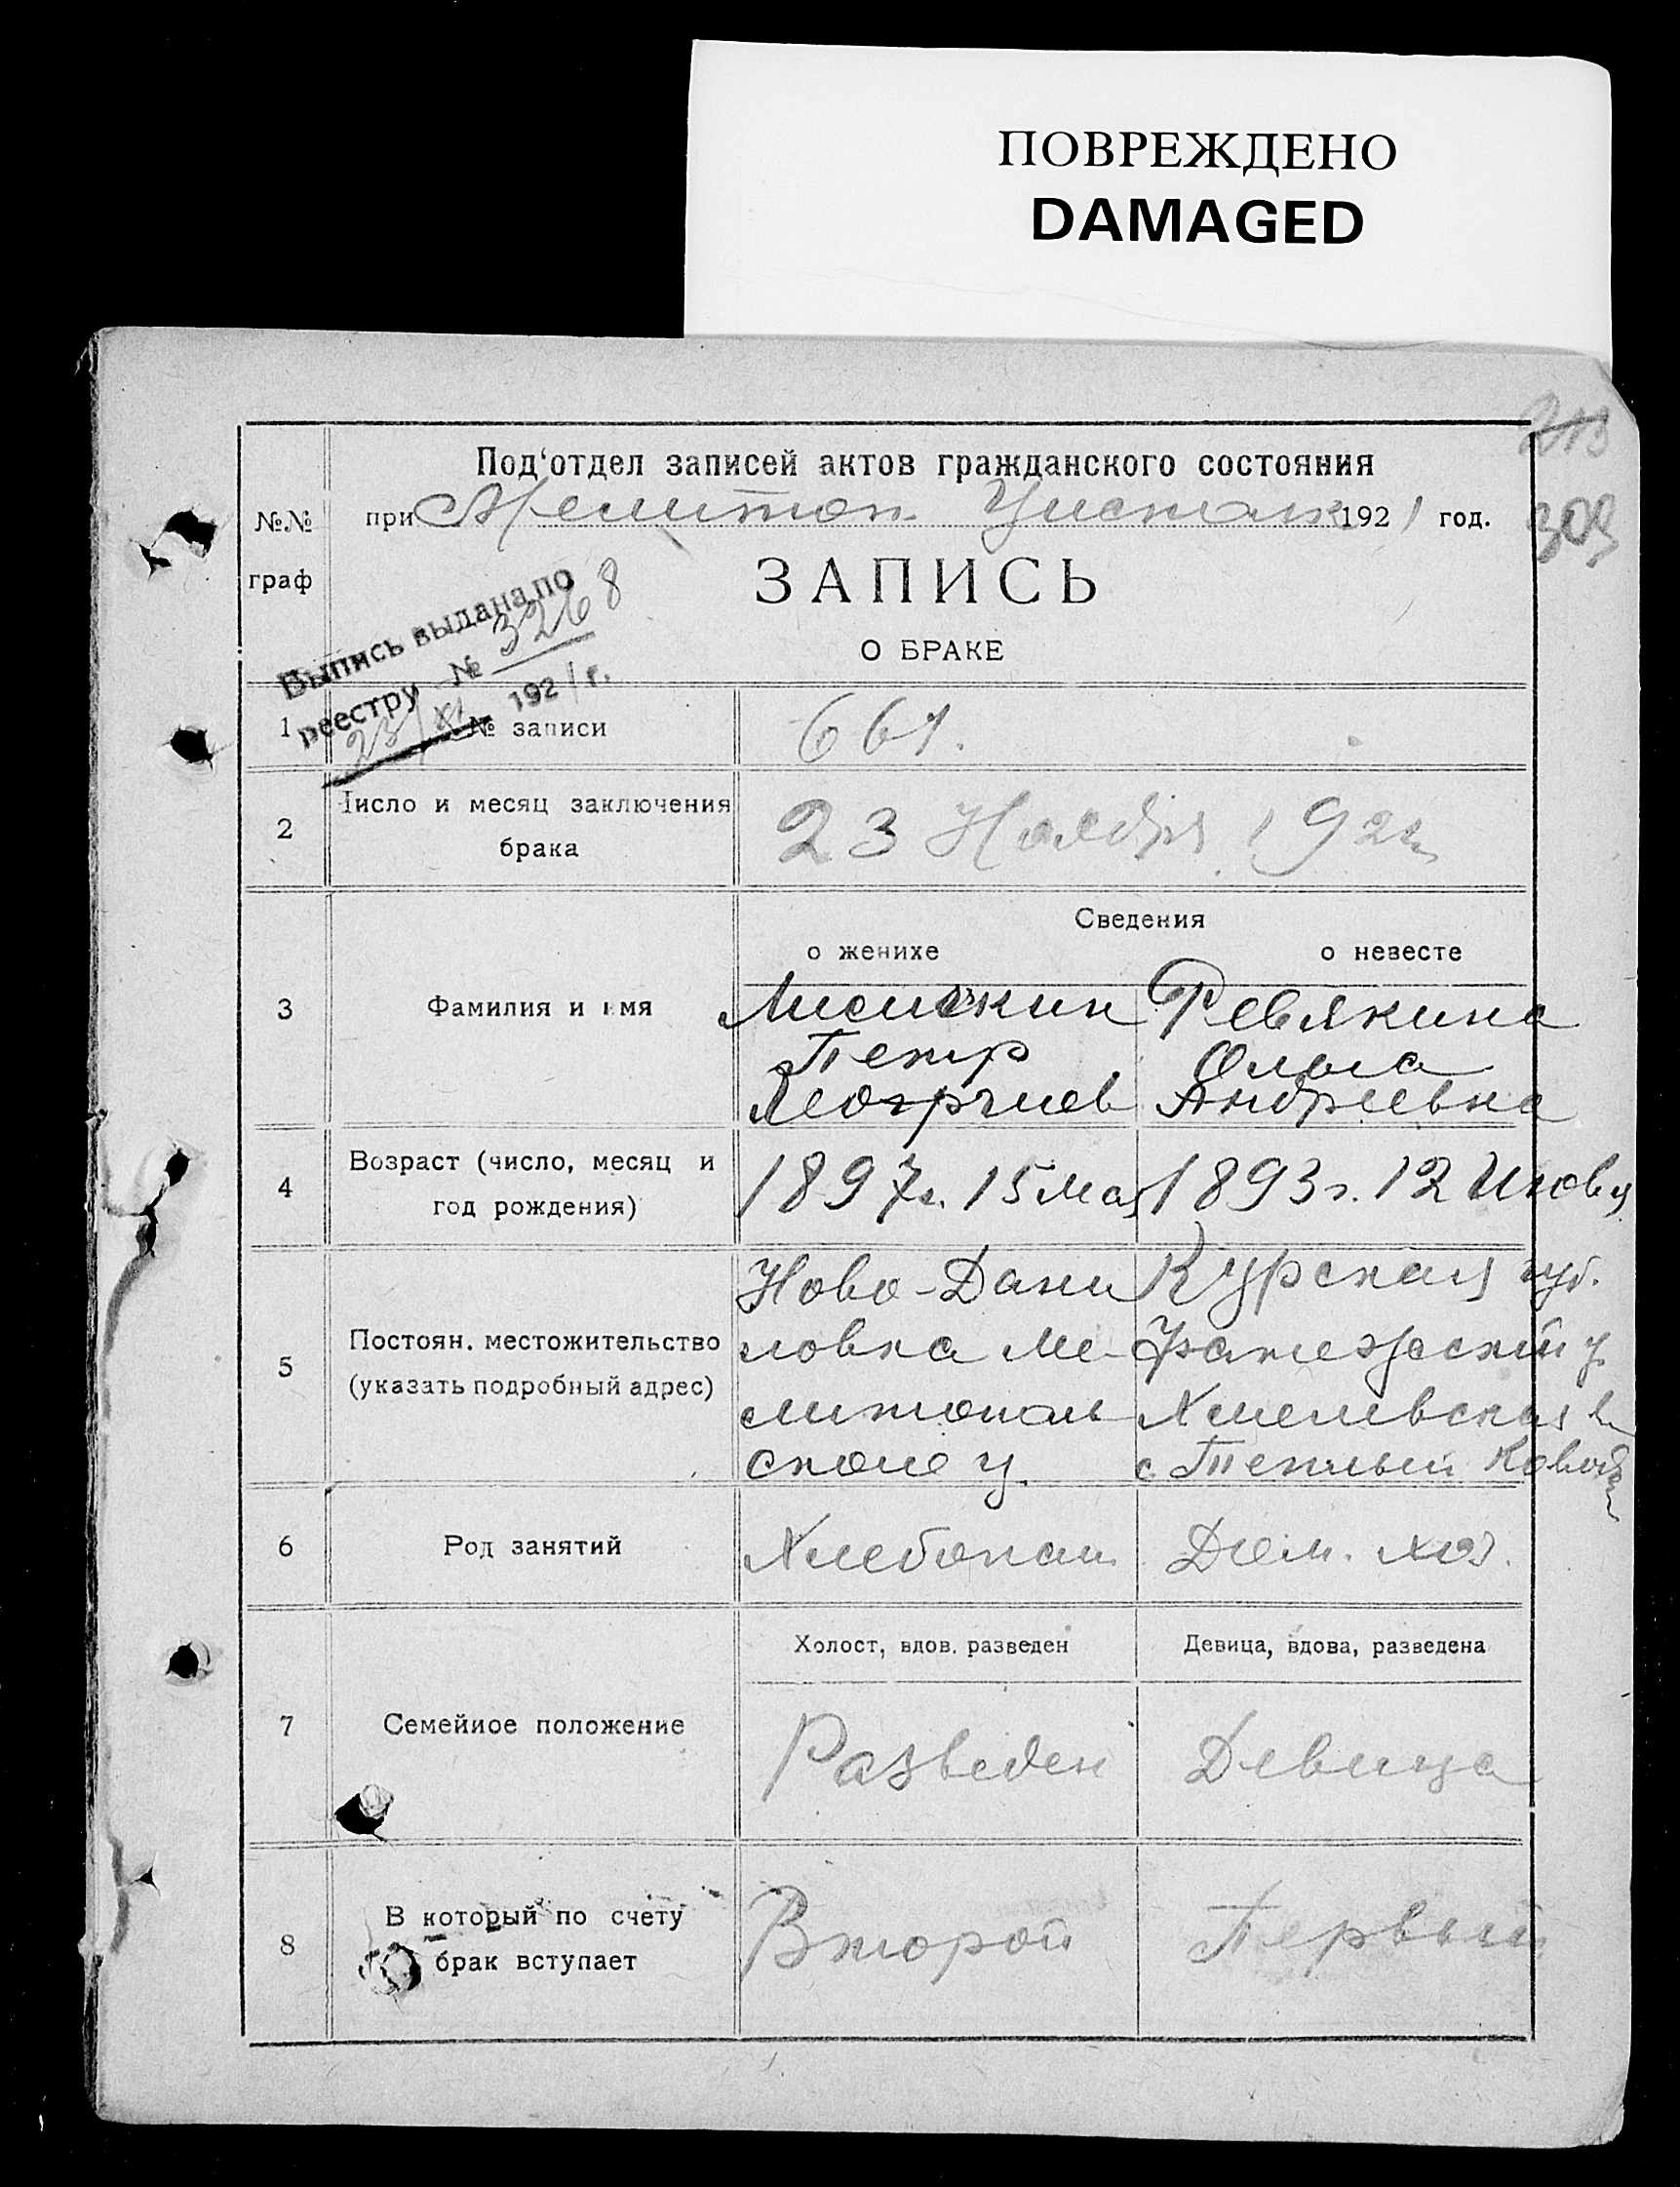 ПОВРЕЖДЕНО
DAMAGED
213
Под'отдел записей актов гражданского состояния
№№ граф
при Мелитоп. Уисполк 1921 год.
309
ЗАПИСЬ
О БРАКЕ
Выпись выдана по
реестру № 3268
23/XI 1921 г.
1 № записи 661.
2 Число и месяц заключения брака 23 Ноября 1921г.
Сведения
о женихе о невесте
3 Фамилия и имя
Лисичкин Ревякина
Петр Ольга
Георгиев Андреевна
4 Возраст (число, месяц и год рождения) 1897г. 15 Мая 1893г. 12 Июля
5 Постоян. местожительство (указать подробный адрес)
Ново-Дани Курская губ.
ловка Ме- Фатежский у.
литополь Хмелевская в.
ского у. с. Теплый
6 Род занятий Хлебопаш. Дом. хоз.
Холост, вдов. разведен Девица, вдова, разведена
7 Семейное положение Разведен Девица
8 В который по счету брак вступает Второй Первый